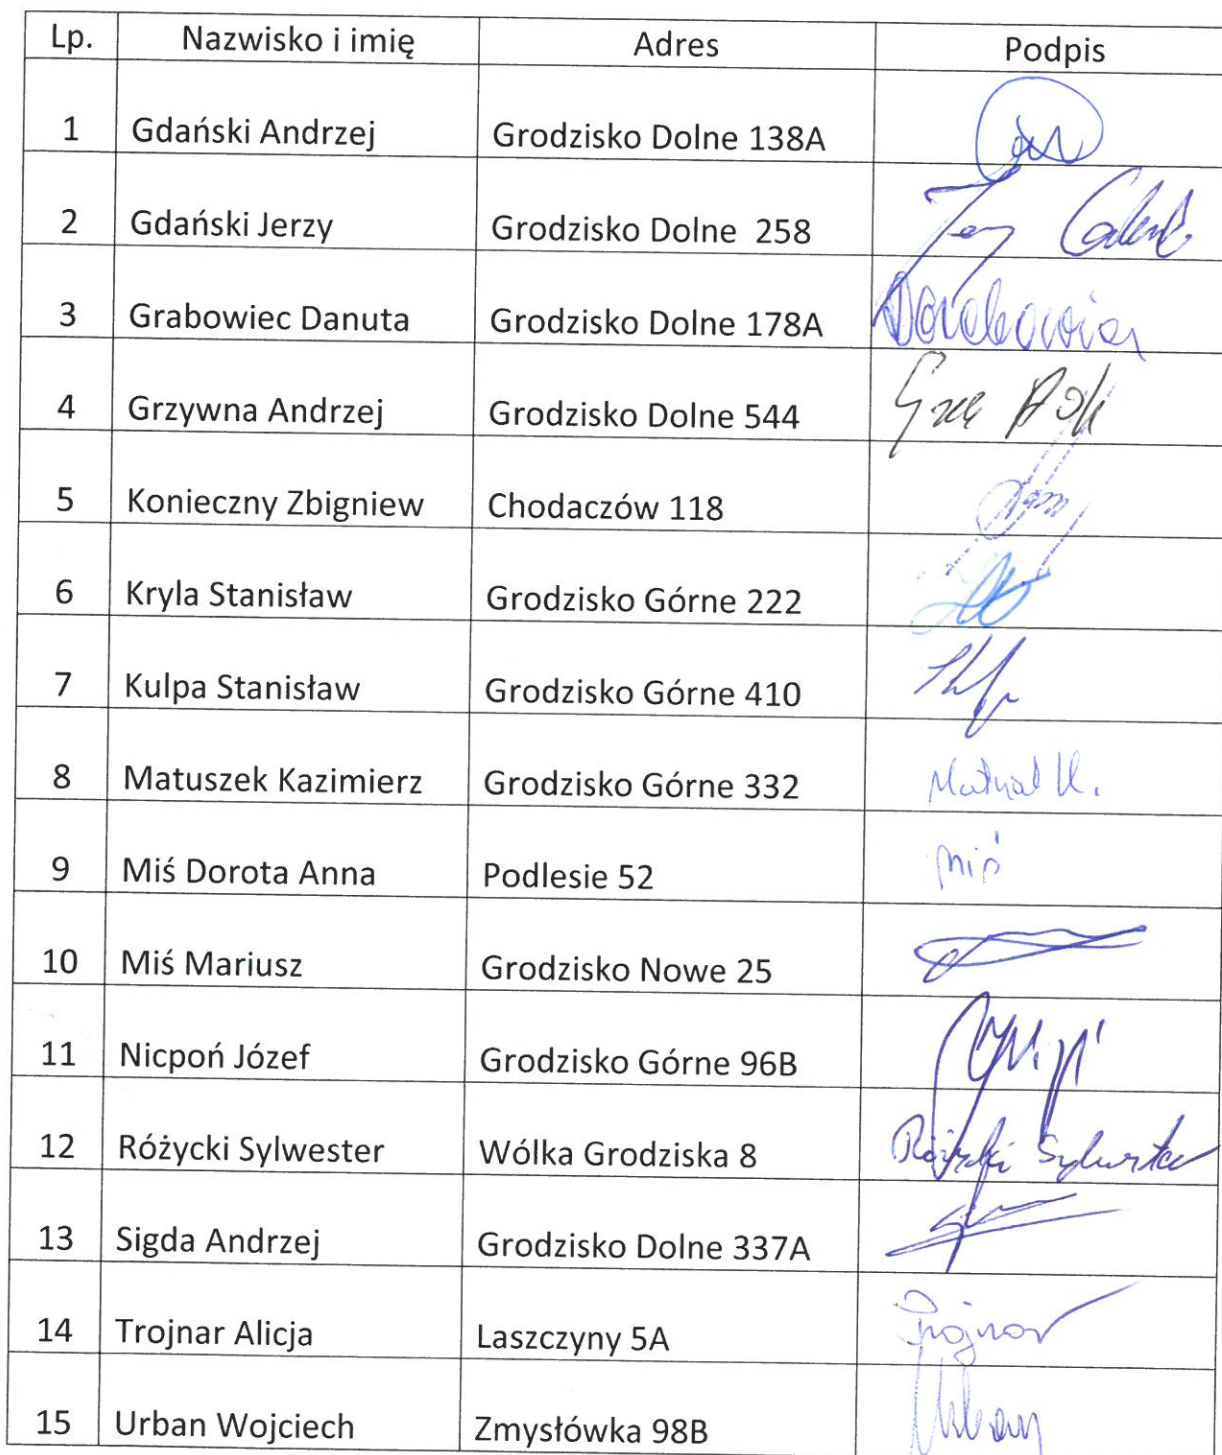 Lp. Nazwisko i imię Adres Podpis
1 Gdański Andrzej Grodzisko Dolne 138A
2 Gdański Jerzy Grodzisko Dolne 258
3 Grabowiec Danuta Grodzisko Dolne 178A
4 Grzywna Andrzej Grodzisko Dolne 544
5 Konieczny Zbigniew Chodaczów 118
6 Kryla Stanisław Grodzisko Górne 222
7 Kulpa Stanisław Grodzisko Górne 410
8 Matuszek Kazimierz Grodzisko Górne 332
9 Miś Dorota Anna Podlesie 52 Miś
10 Miś Mariusz Grodzisko Nowe 25
11 Nicpoń Józef Grodzisko Górne 96B
12 Różycki Sylwester Wólka Grodziska 8 Różycki Sylwester
13 Sigda Andrzej Grodzisko Dolne 337A
14 Trojnar Alicja Laszczyny 5A Trojnar
15 Urban Wojciech Zmysłówka 98B Urban